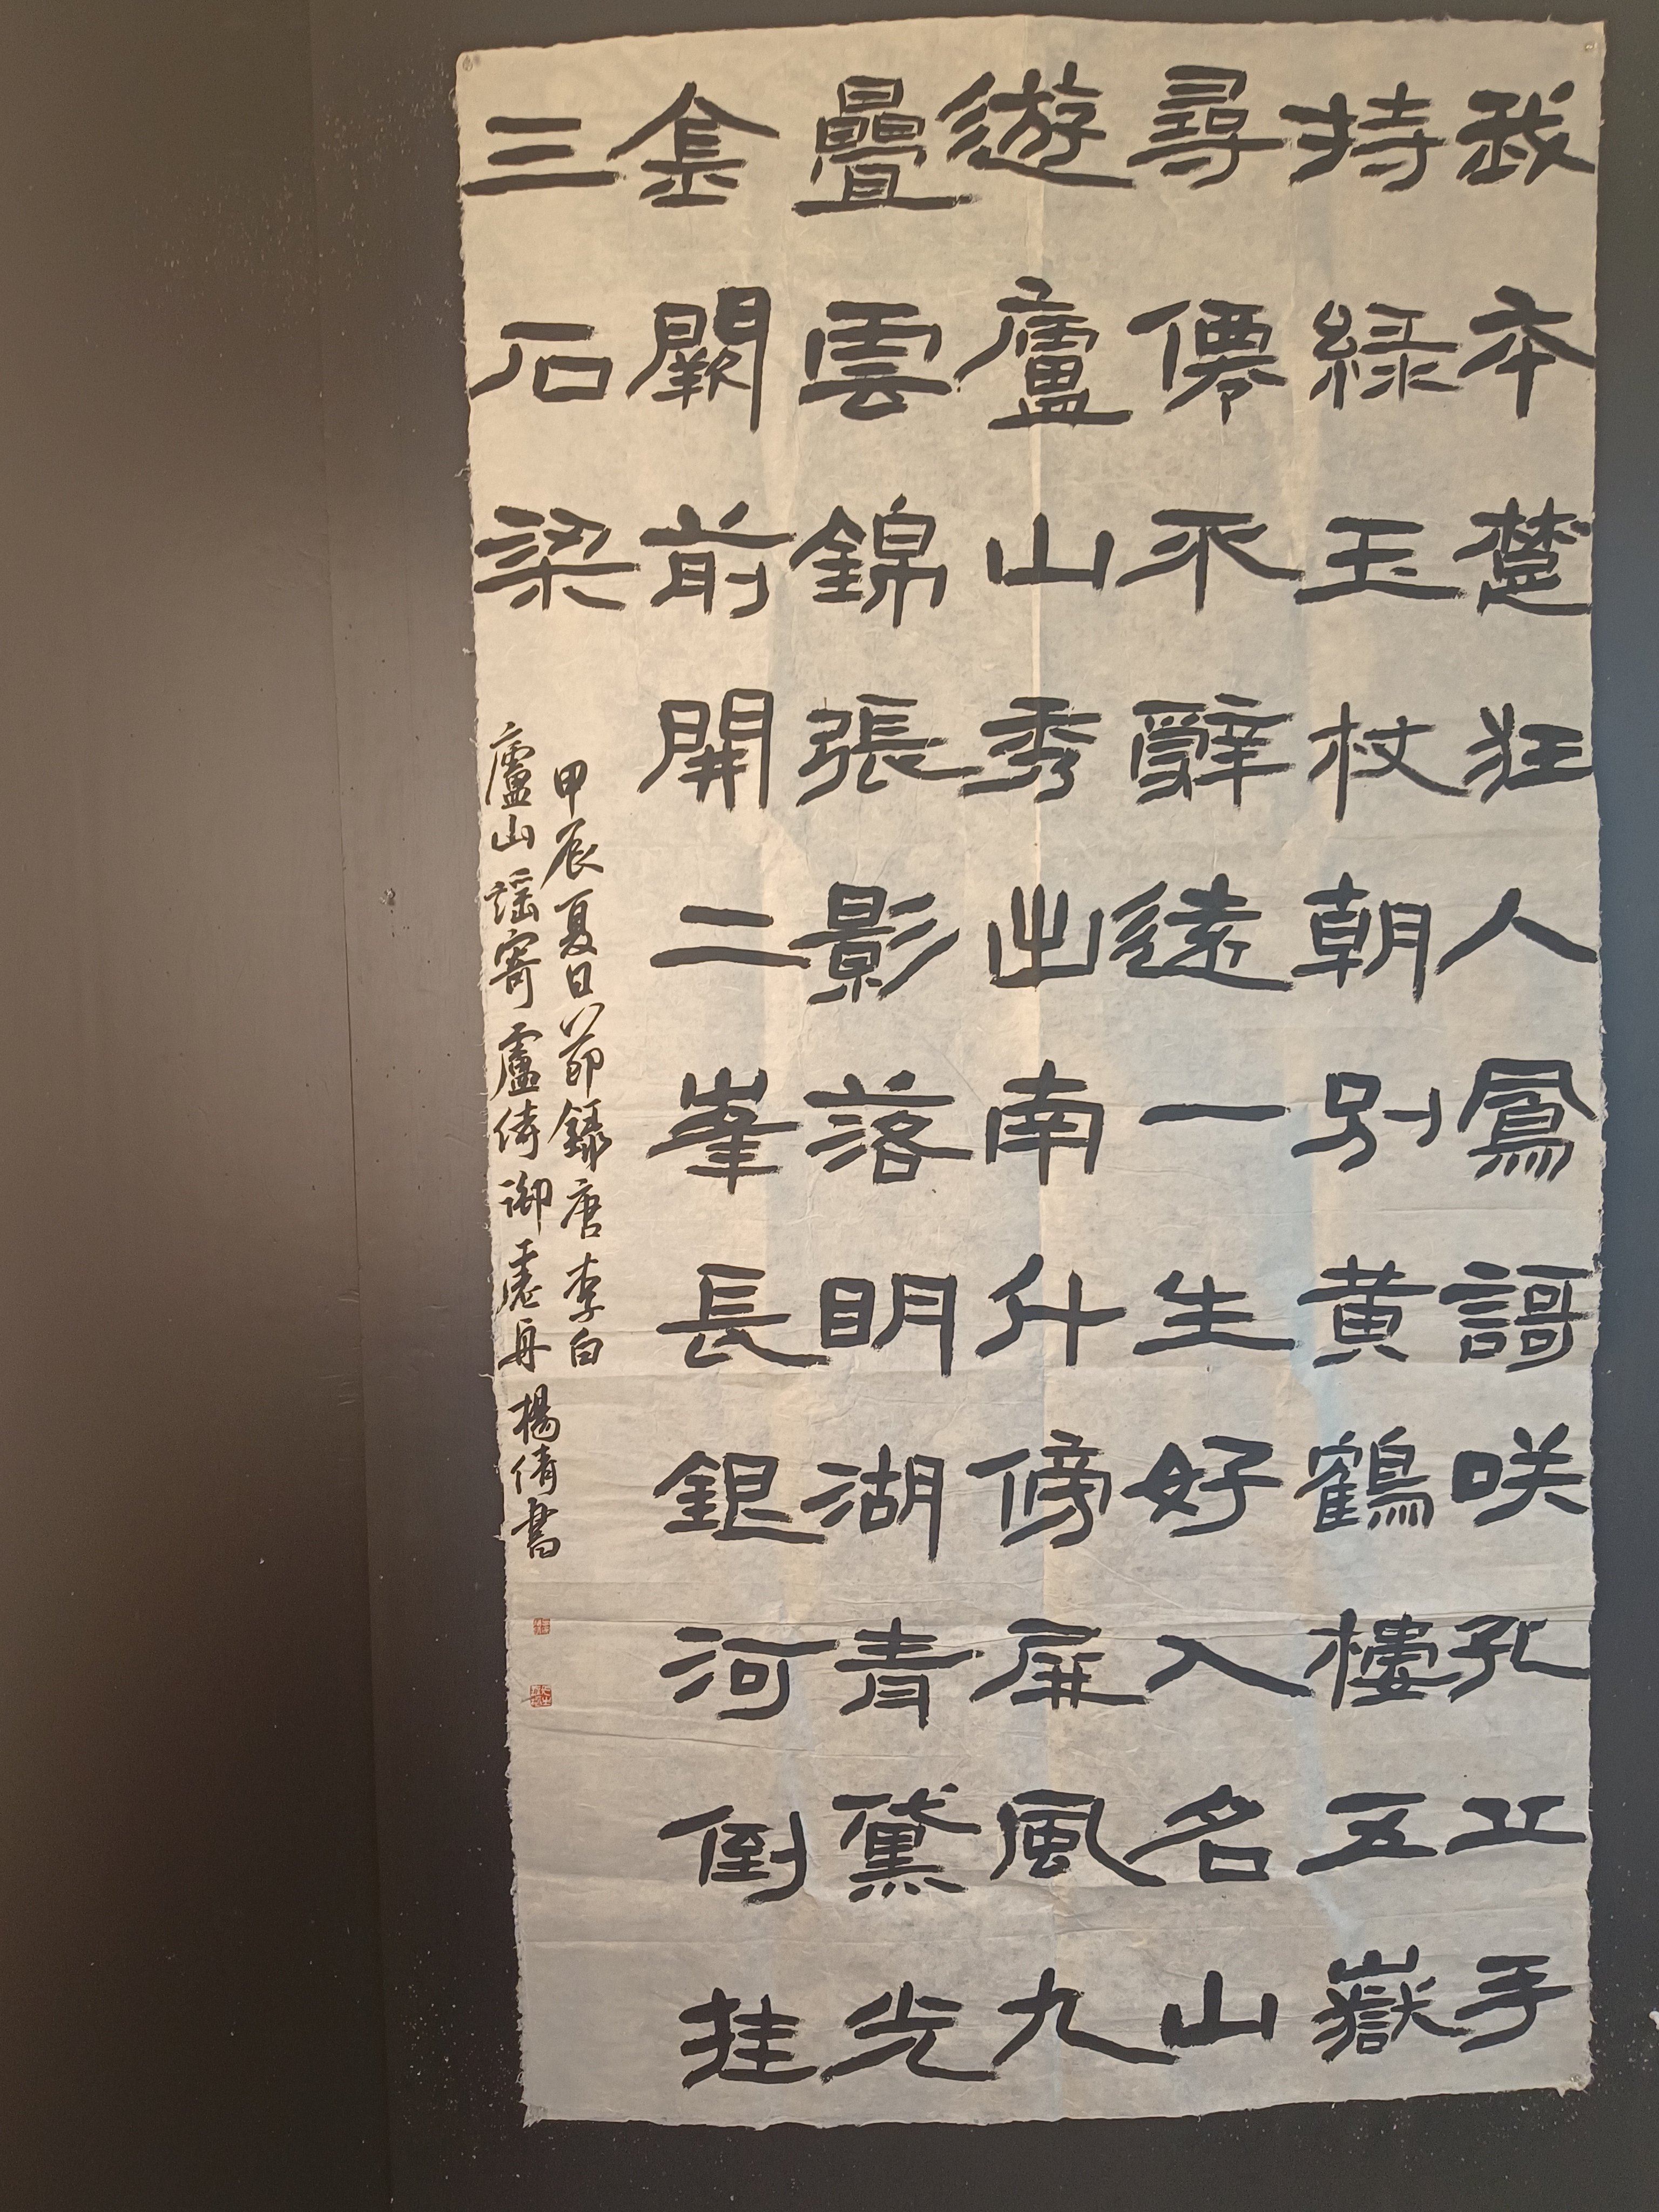 我本楚狂人鳳謌咲孔丘手
持緑玉杖朝别黄鶴樓五嶽
尋僊不辭遠一生好入名山
遊廬山秀出南斗傍屏風九
疊雲錦張影落明湖青黛光
金闕前開二峯長銀河倒挂
三石梁
甲辰夏日節録唐李白
廬山謡寄盧侍御虚舟楊倩書